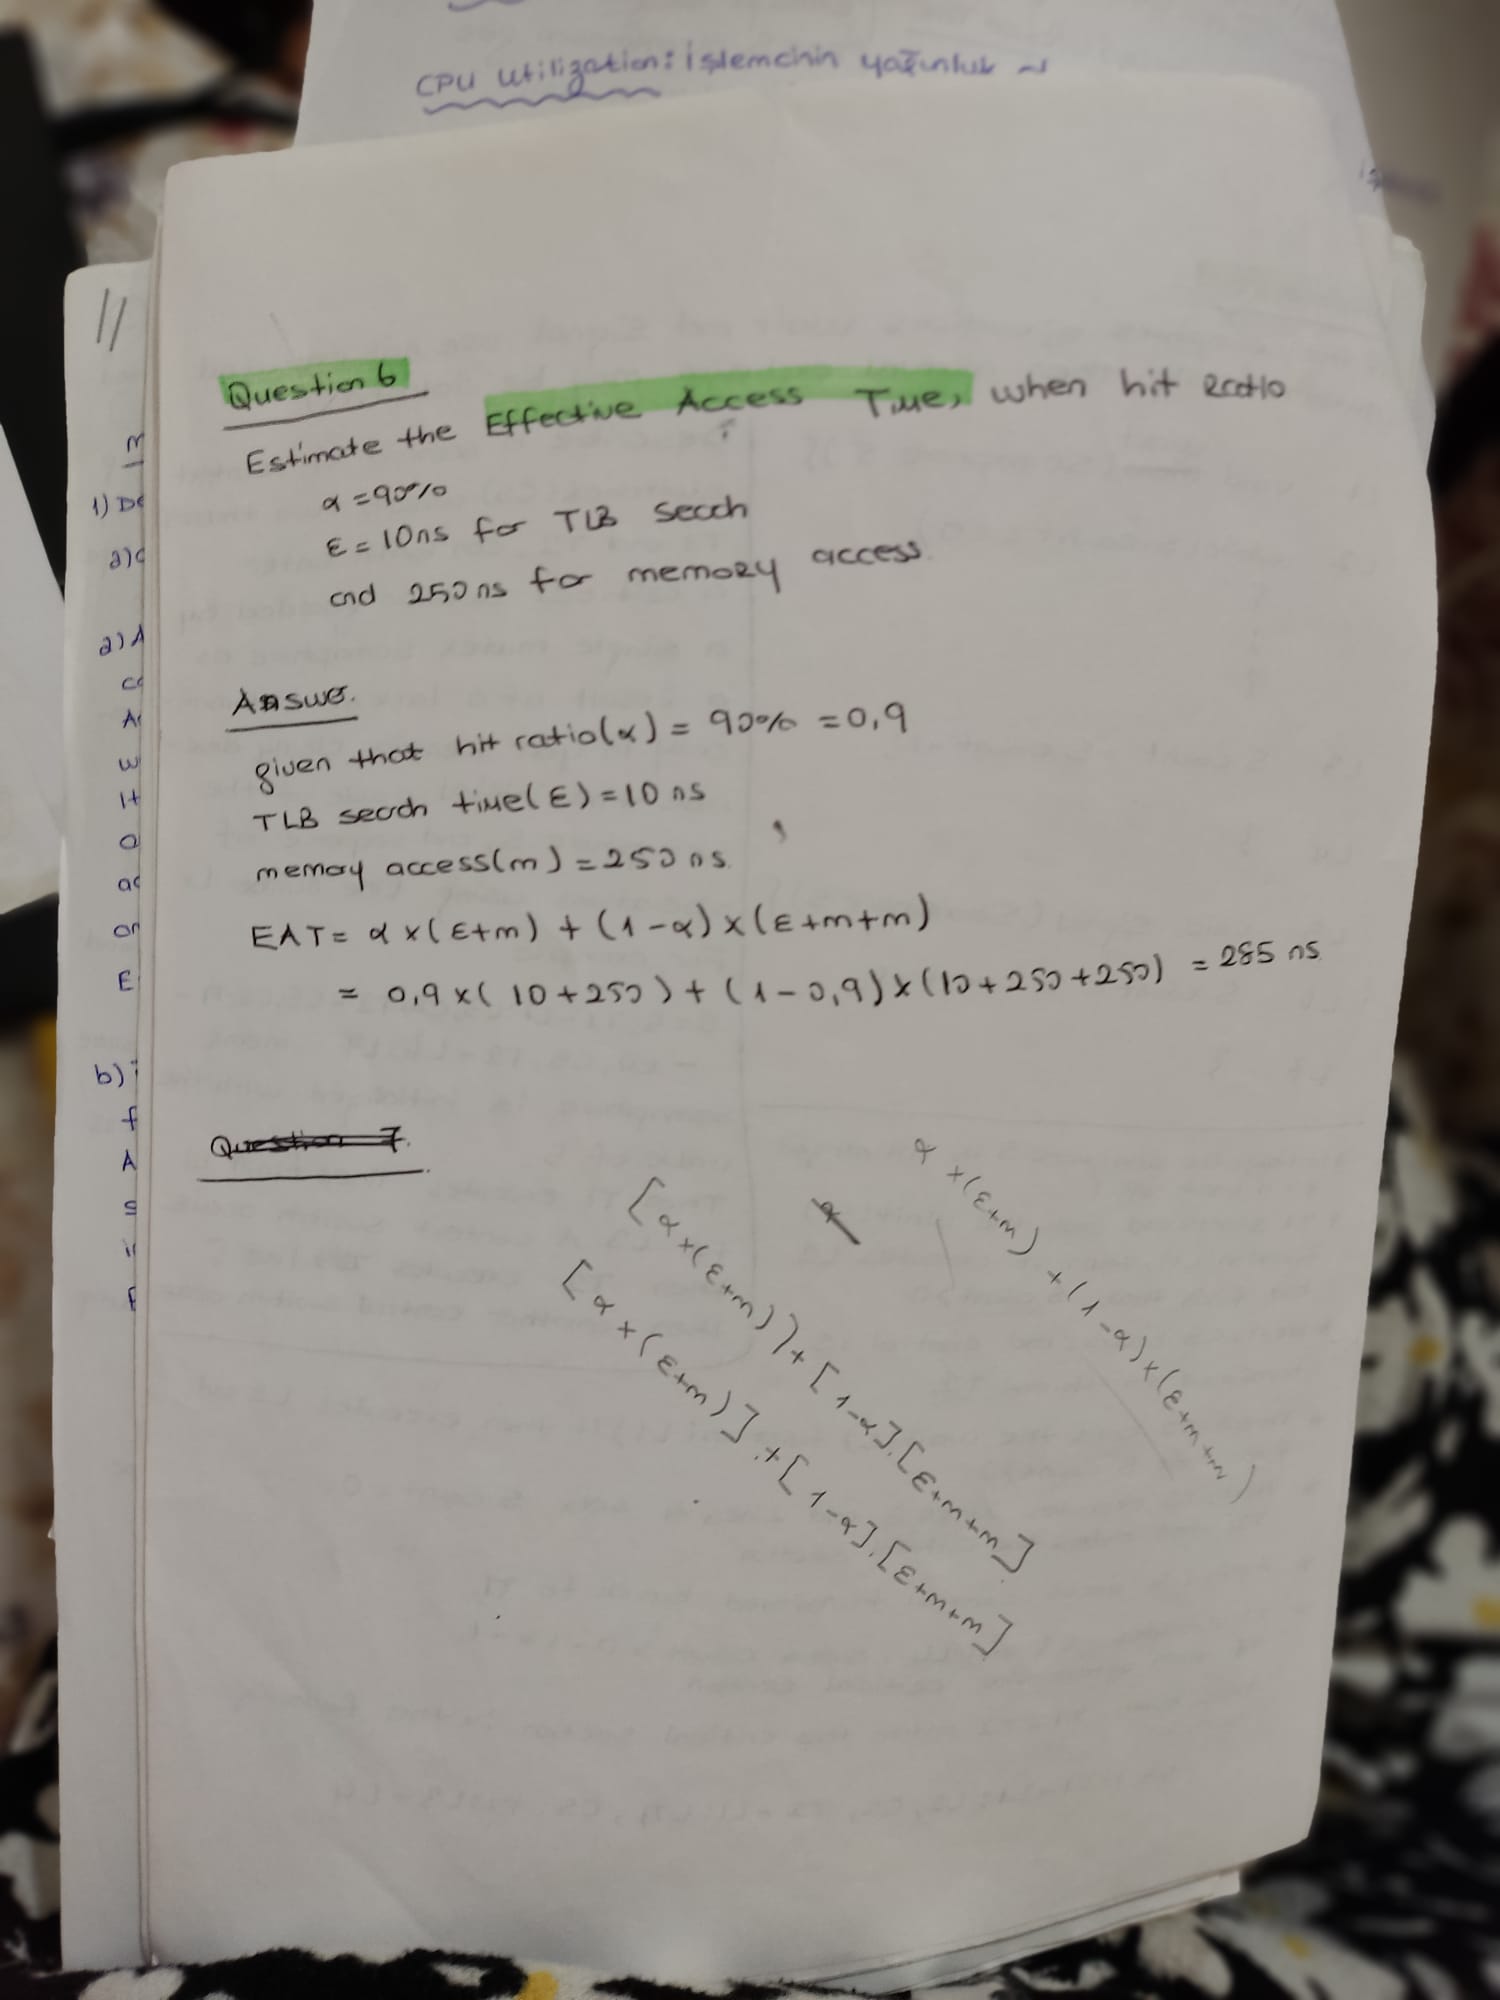 CPU utilization: işlemcinin yoğunluk
Question 6
Estimate the Effective Access Time, when hit ratio
α = 90%
ε = 10ns for TLB seach
and 250 ns for memory access.
Answer.
given that hit ratio(α) = 90% = 0,9
TLB search time(ε) = 10 ns
memory access(m) = 250 ns.
EAT = α x (ε+m) + (1-α) x (ε+m+m)
= 0,9 x ( 10 + 250 ) + (1 - 0,9) x (10 + 250 + 250) = 285 ns.
Question 7.
α x (ε+m) + (1-α) x (ε+m+m)
α
[α x (ε+m)] + [1-α].[ε+m+m]
[α x (ε+m)] + [1-α].[ε+m+m]
11
m
1) De
a) A
A
w
It
O
ac
or
E
b)
f
A
s